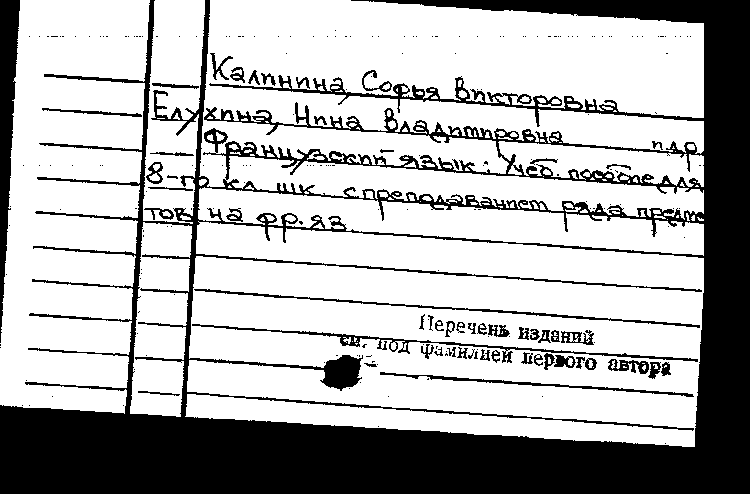 Калинина, Софья Викторовна
Елухина, Нина Владимировна и др.
Французский язык: Учеб. пособие для
8-го кл. шк. с преподаванием ряда предме
тов на фр. яз.
Перечень изданий
см. под фамилией первого автора